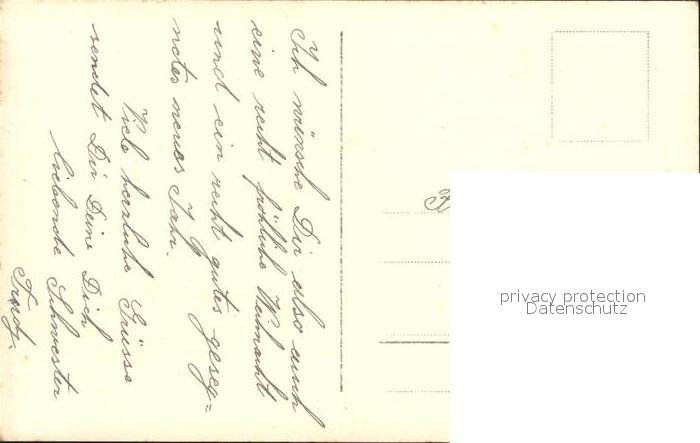 Ich wünsche Dir also auch
eine recht fröhliche Weihnacht
und ein recht gutes geseg=
netes neues Jahr.
Viele herzliche Grüsse
sendet Dir Deine Dich
liebende Schwester
Trudy.
privacy protection
Datenschutz